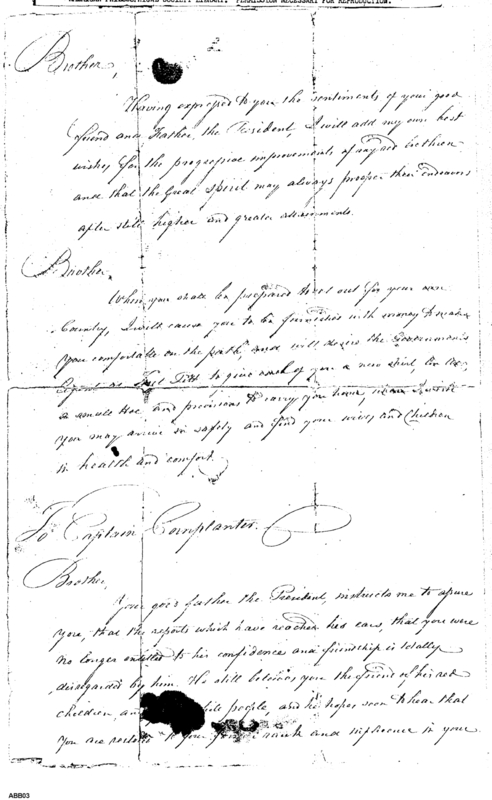 AMERICAN PHILOSOPHICAL SOCIETY LIBRARY. PERMISSION NECESSARY FOR REPRODUCTION.
2
Brother,
Having expressed to you the sentiments of your good
friend and Father, the President, I will add my own best
wishes for the progressive improvements of my red brethren
and that the Great Spirit may always prosper their endeavors
after still higher and greater attainments.
Brother,
When you shall be prepared to set out for your own
Country, I will cause you to be furnished with money to make
you comfortable on the path, and will desire the Government's
Agent at Fort Pitt to give each of you a new Shirt,
a small Hoe, and provisions to carry you home, where I wish
you may arrive in safety and find your wives and Children
in health and comfort.
To Captain Cornplanter.
Brother,
Your good father the President, instructs me to assure
you, that the reports which have reached his ears, that you were
no longer entitled to his confidence and friendship is totally
disregarded by him. He still believes you the friend of his red
children, and people, and he hopes soon to hear that
you are restored to your former rank and influence in your
ABB03